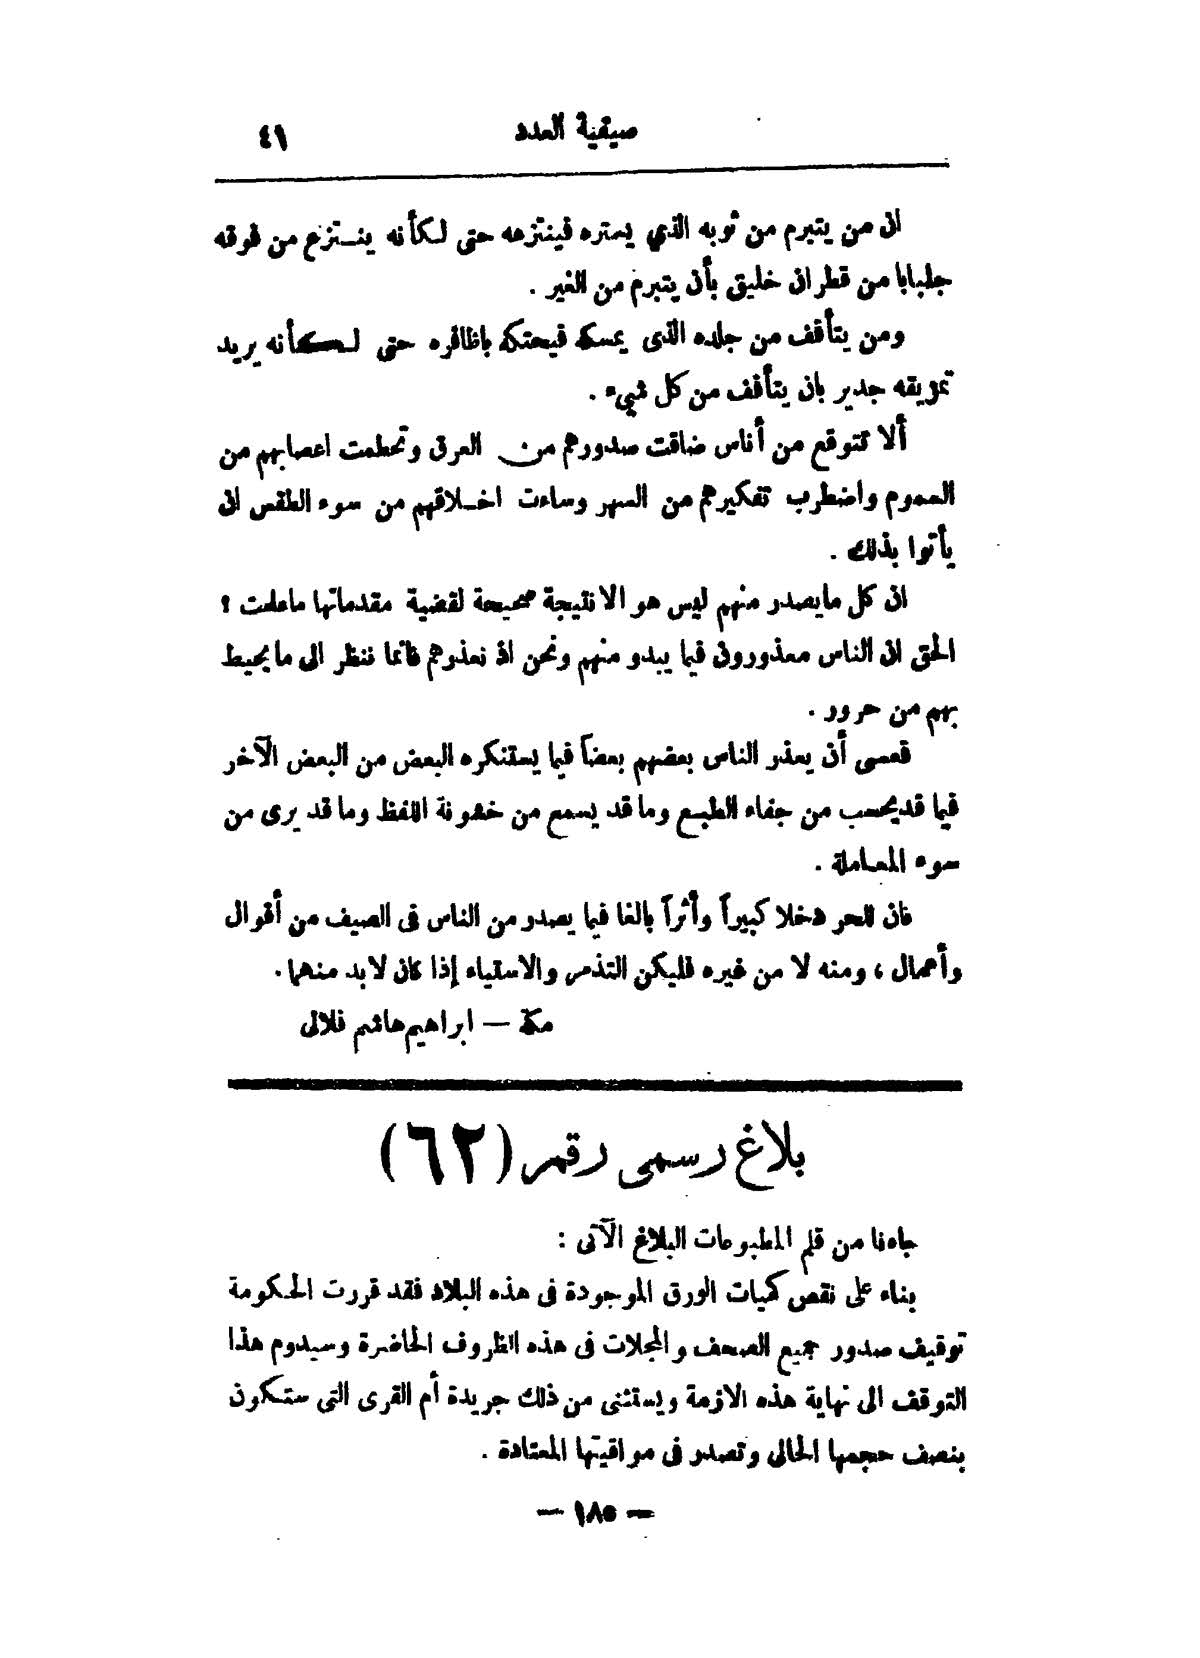 صيفية العدد
٤١
ان من يتبرم من ثوبه الذي يستره فينتزعه حتى لكأنه ينتزع من فوقه
جلبابا من قطران خليق بأن يتبرم من الغير .
ومن يتأفف من جلده الذى يمسكه فيحتكه باظافره حتى لكأنه يريد
تمزيقه جدير بان يتأفف من كل شيء .
ألا تتوقع من أناس ضاقت صدورهم من العرق وتحطمت اعصابهم من
السموم واضطرب تفكيرهم من السهر وساءت اخلاقهم من سوء الطقس ان
يأتوا بذلك .
ان كل مايصدر منهم ليس هو الا نتيجة صحيحة لقضية مقدماتها ماعلمت ؟
الحق ان الناس معذورون فيما يبدو منهم ونحن اذ نعذرهم فانما ننظر الى ما يحيط
بهم من حرور .
فعسى أن يعذر الناس بعضهم بعضاً فيما يستنكره البعض من البعض الآخر
فيما قد يحسب من جفاء الطبع وما قد يسمع من خشونة اللفظ وما قد يرى من
سوء المعاملة .
فان للحر دخلا كبيراً وأثراً بالغا فيما يصدر من الناس فى الصيف من أقوال
وأعمال ، ومنه لا من غيره فليكن التذمر والاستياء إذا كان لا بد منهما .
مكة — ابراهيم هاشم فلالى
بلاغ رسمى رقم (٦٢)
جاءنا من قلم المطبوعات البلاغ الآتى :
بناء على نقص كميات الورق الموجودة فى هذه البلاد فقد قررت الحكومة
توقيف صدور جميع الصحف والمجلات فى هذه الظروف الحاضرة وسيدوم هذا
التوقف الى نهاية هذه الازمة ويستثنى من ذلك جريدة أم القرى التى ستكون
بنصف حجمها الحالى وتصدر فى مواقيتها المعتادة .
— ١٨٥ —